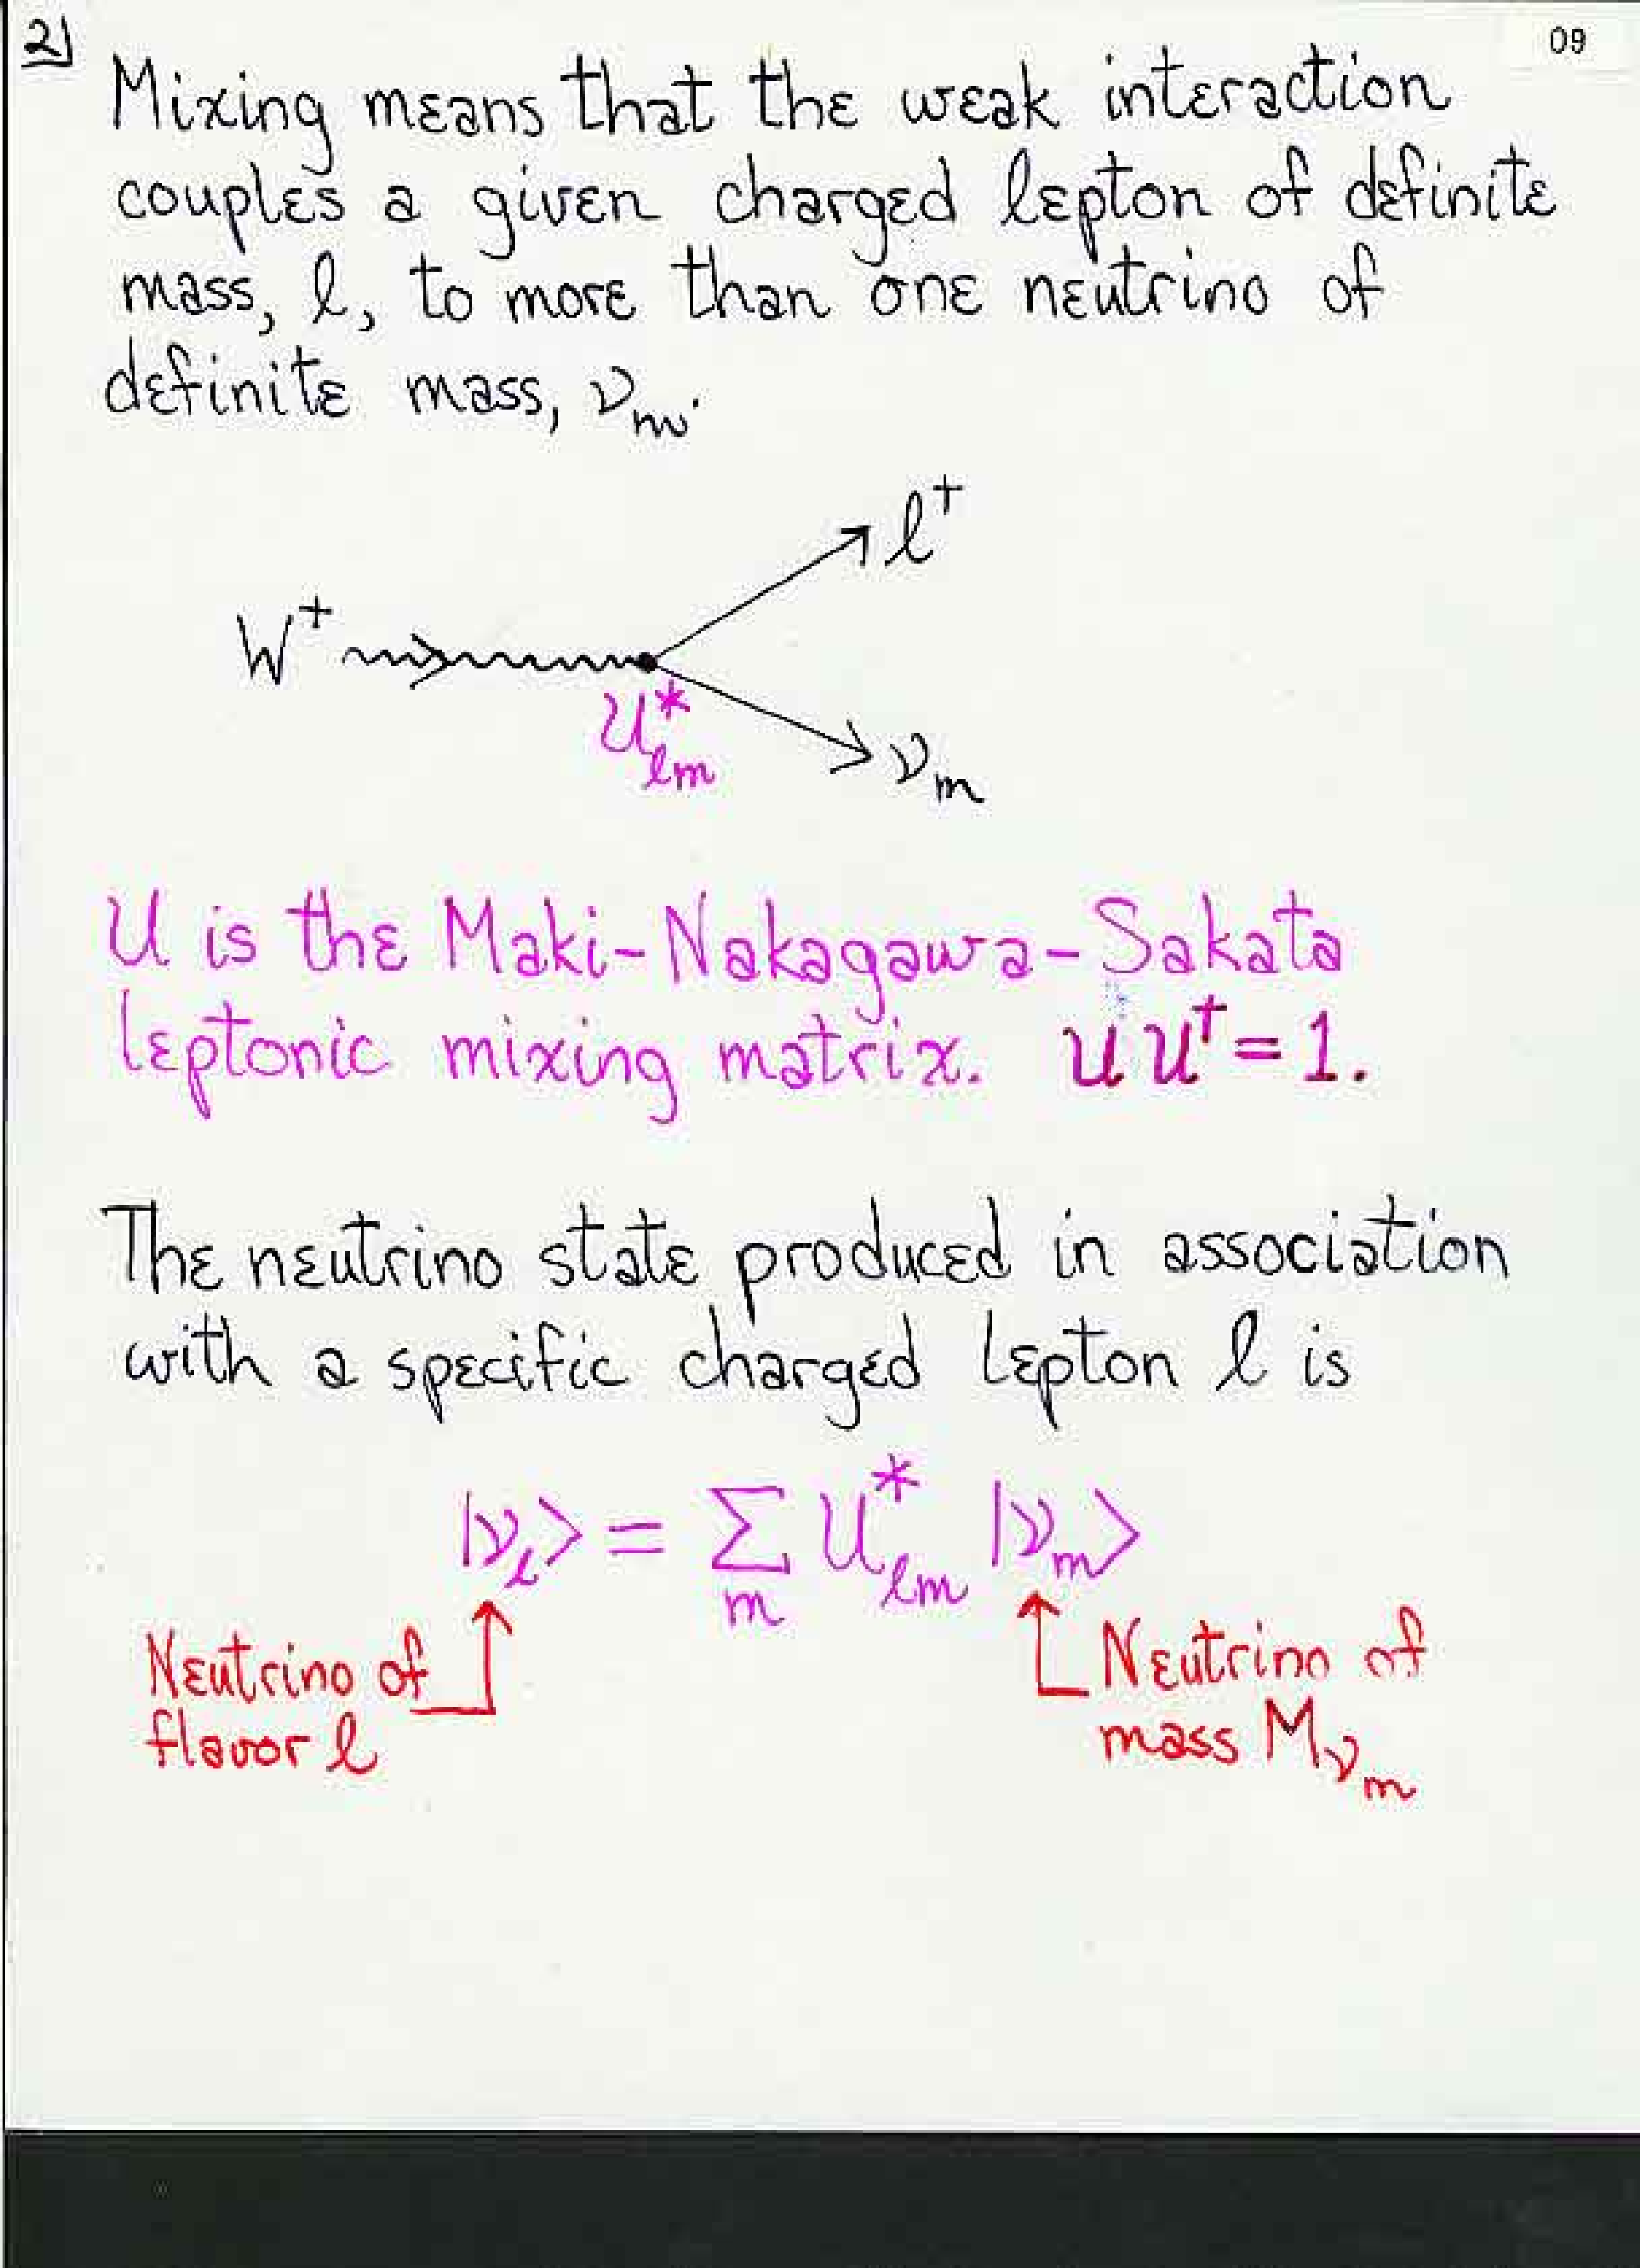 2)
09
Mixing means that the weak interaction
couples a given charged lepton of definite
mass, ℓ, to more than one neutrino of
definite mass, ν_m.
ℓ⁺
W⁺
U*_ℓm
ν_m
U is the Maki-Nakagawa-Sakata
leptonic mixing matrix. U U† = 1.
The neutrino state produced in association
with a specific charged lepton ℓ is
|ν_ℓ> = Σ_m U*_ℓm |ν_m>
Neutrino of
flavor ℓ
Neutrino of
mass M_ν_m